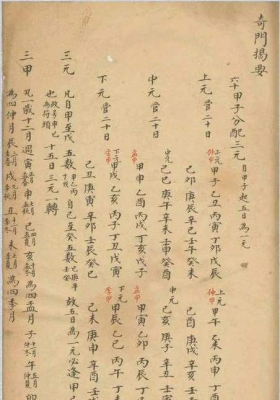 奇門揭要
六十甲子分配三元 自甲子起五日為一元
上元管二十日
上元 甲子乙丑丙寅丁卯戊辰
己卯庚辰辛巳壬午癸未
上元 甲午乙未丙申丁
己酉庚戌辛亥壬
中元管二十日
中元 己巳庚午辛未壬申癸酉
甲申乙酉丙戌丁亥戊子
中元 己亥庚子辛丑壬寅
甲寅乙卯丙辰丁
下元管二十日
下元 甲戌乙亥丙子丁丑戊寅
己丑庚寅辛卯壬辰癸巳
下元 甲辰乙巳丙午丁
己未庚申辛酉壬
三元 凡自甲至戊五数 自己至癸五数 故五日為一元必逢甲己
也 故 為符頭 十五日三元一轉
三甲 凡一歲十二月週寅申巳亥為四孟月子午卯
為四仲月辰戌丑未為四季月